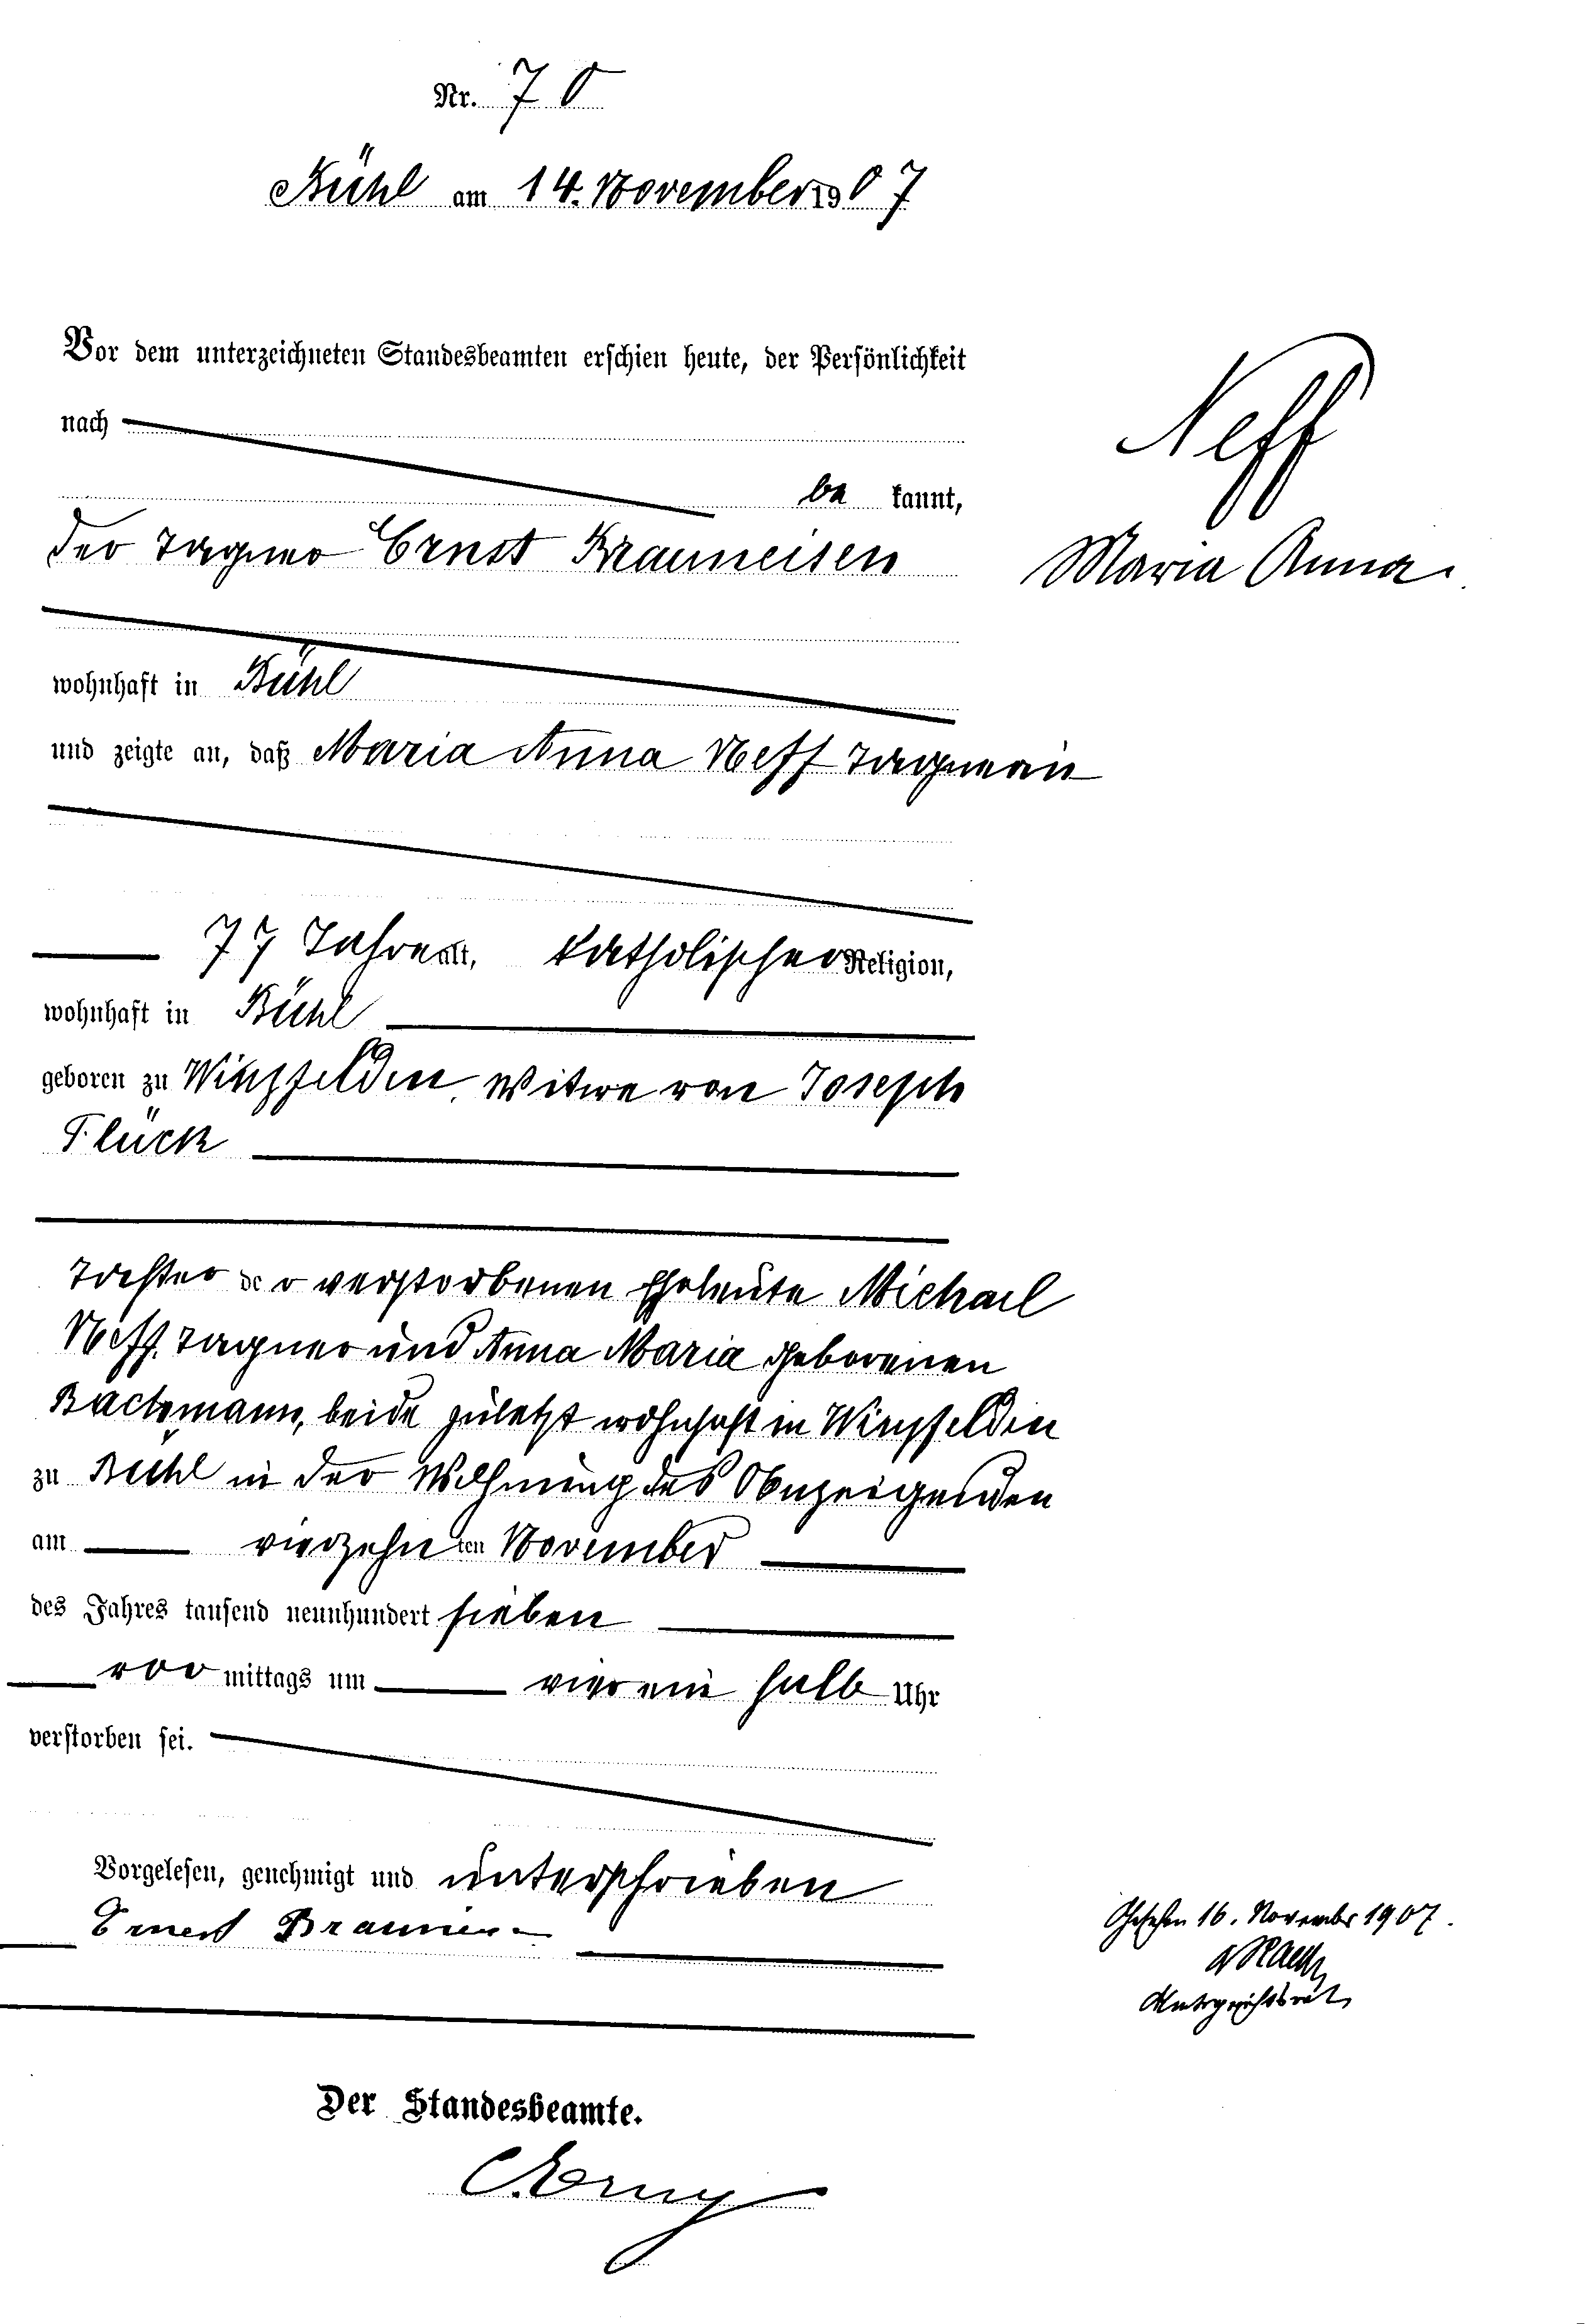 Nr. 70
Bühl am 14. November 1907
Vor dem unterzeichneten Standesbeamten erschien heute, der Persönlichkeit
nach
be kannt,
der Tagner Ernst Brauneisen
Neff
Maria Anna.
wohnhaft in Bühl
und zeigte an, daß Maria Anna Neff Tagnerin
77 Jahre alt, katholischer Religion,
wohnhaft in Bühl
geboren zu Winzfelden, Witwe von Joseph
Flück
Tochter der verstorbenen Eheleute Michael
Neff, Tagner und Anna Maria geborenen
Bachmann, beide zuletzt wohnhaft in Winzfelden
zu Bühl in der Wohnung des Anzeigenden
am vierzehn ten November
des Jahres tausend neunhundert sieben
vor mittags um vier ein halb Uhr
verstorben sei.
Vorgelesen, genehmigt und unterschrieben
Ernest
Gesehen 16. November 1907.
Amtsgerichtsrat
Der Standesbeamte.